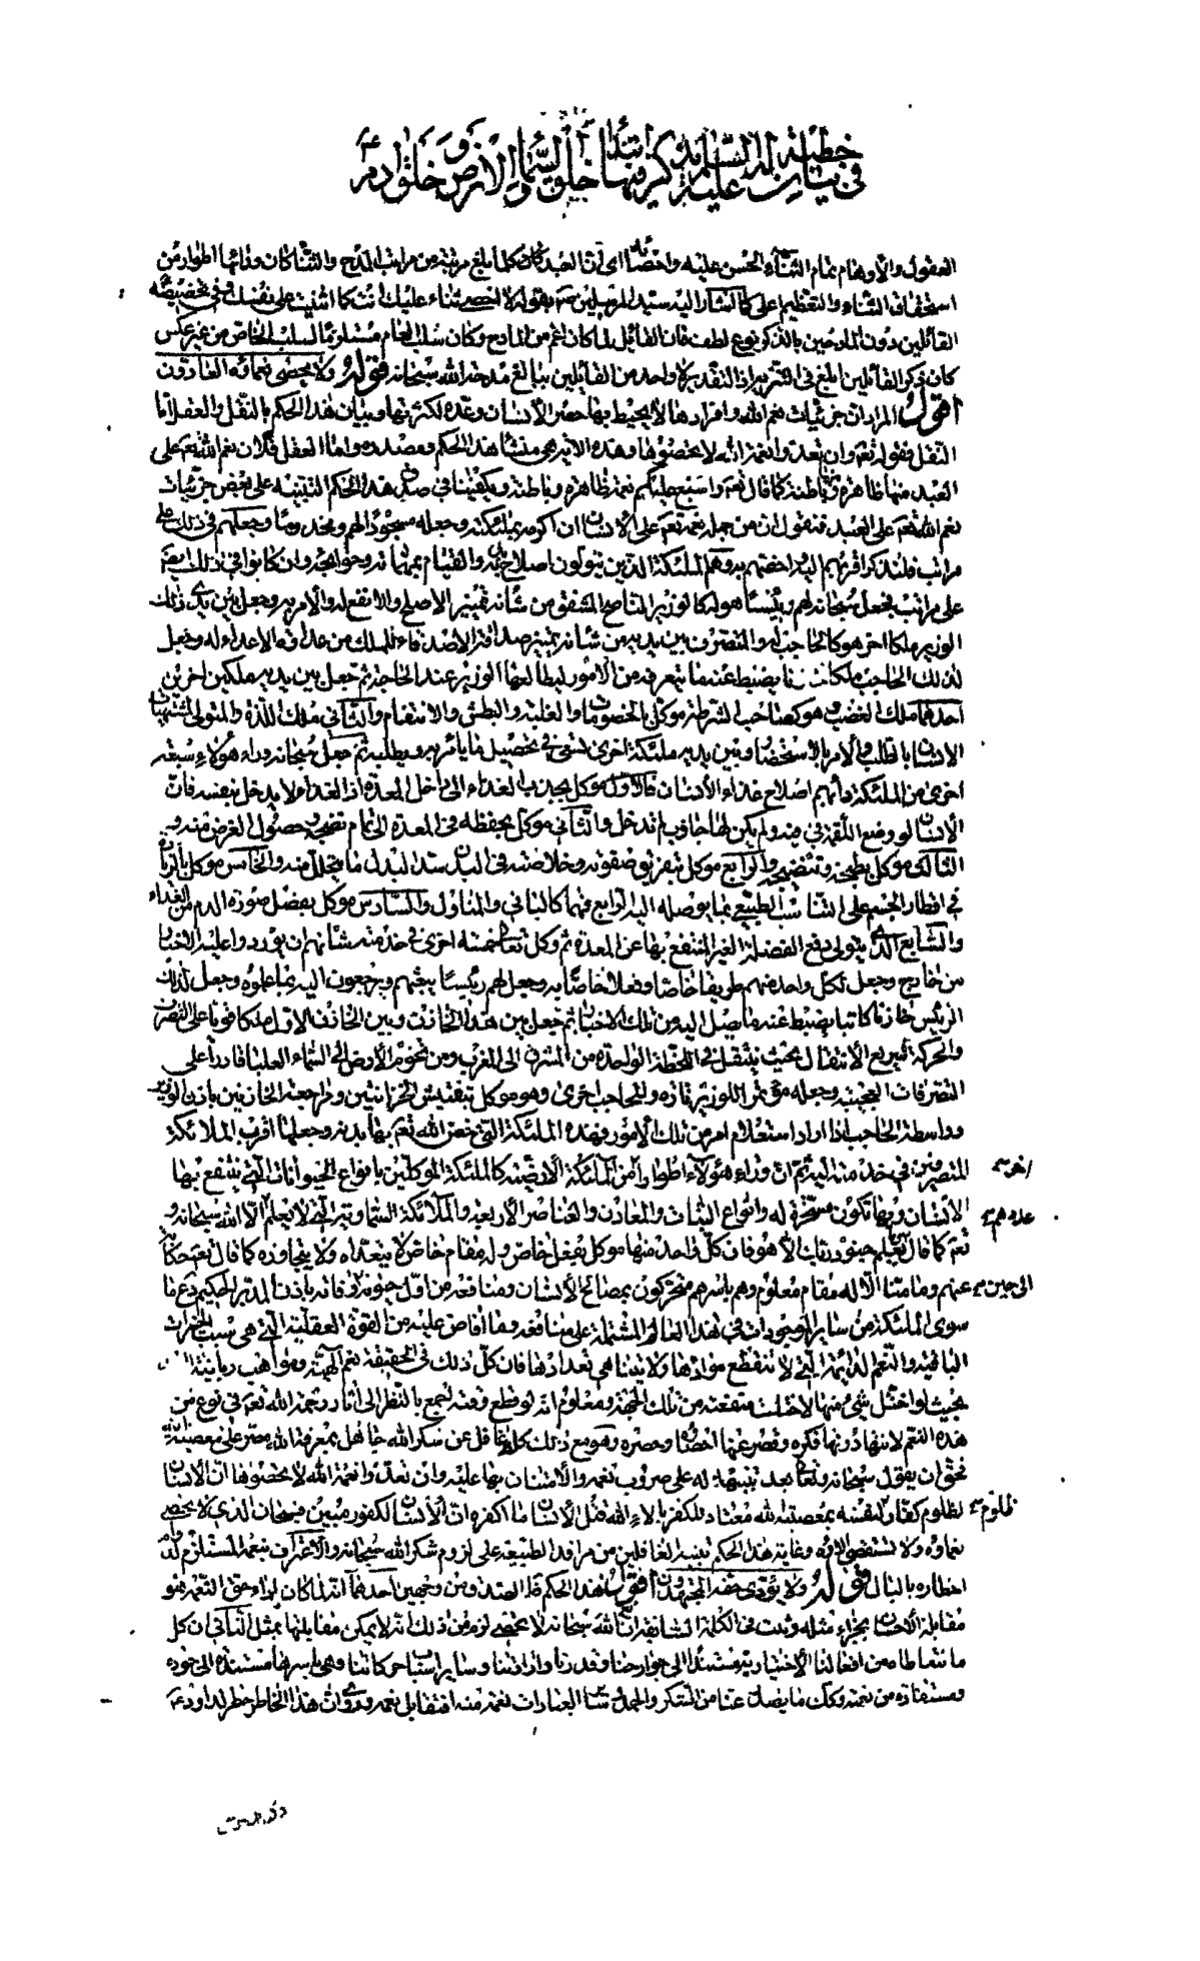 في بيان خطبة له عليه السلام يذكر فيها ابتداء خلق السماء والارض وخلق ادم ع
العقول والاوهام بتمام الثناء الحسن عليه واحصائه اى ان العبد كان كلما بلغ مرتبة من مراتب المدح والثناء كان ورائها اطوار من
استحقاق الثناء والتعظيم اعلى كما اشار اليه سيد المرسلين ص بقوله لا احصى ثناء عليك انت كما اثنيت على نفسك وفى تخصيصه
القائلين دون المادحين بالذكر نوع لطف فان القائل لما كان اعم من المادح وكان سلب العام مستلزما لسلب الخاص من غير عكس
كان ذكر القائلين ابلغ فى التنزيه اذ التقدير لا واحد من القائلين ببالغ مدحة الله سبحانه قوله ولا يحصى نعمائه العادون
اقول المراد ان جزئيات نعم الله وافرادها لا يحيط بها حصر الانسان وعده لكثرتها وبيان هذا الحكم بالنقل والعقل اما
النقل فقوله تعم وان تعدوا نعمة الله لا تحصوها وهذه الاية هى منشأ هذا الحكم ومصدره واما العقل فلان نعم الله تعم على
العبد منها ظاهرة وباطنة كما قال تعم واسبغ عليكم نعمه ظاهرة وباطنة ويكفينا في صدق هذا الحكم التنبيه على بعض جزئيات
نعم الله تعم على العبد فنقول ان من جملة نعمه تعم على الانسان ان اكرمه بملئكته وجعله مسجودا لهم ومخدوما وجعلهم فى ذلك على
مراتب فلنذكر اقربهم اليه واخصهم به وهم الملئكة الذين يتولون اصلاح بدنه والقيام بمهماته وحوائجه وان كانوا فى ذلك ايضا
على مراتب فجعل سبحانه لهم رئيسا هو له كالوزير الناصح المشفق من شانه تمييز الاصلح والانفع له والامر به وجعل بين يدى ذلك
الوزير ملكا اخر هو كالحاجب له والمتصرف بين يديه من شانه تمييز صداقة الاصدقاء للملك من عداوة الاعداء له وجعل
لذلك الحاجب ملكا خازنا يضبط عنه ما يتعرفه من الامور ليطالعها الوزير عند الحاجة ثم جعل بين يديه ملكين اخرين
احدهما ملك الغضب وهو كصاحب الشرطة موكل بالخصومات والغلبة والبطش والانتقام والثانى ملك اللذة والمتولى لمشتهيات
الانسان بالطلب والامر بالاستحضار وبين يديه ملئكة اخرى تسعى فى تحصيل ما يأمر به ويطلبه ثم جعل سبحانه وراء هؤلاء سبعة
اخرى من الملئكة دأبهم اصلاح غذاء الانسان فالاول موكل بجذب الغذاء الى داخل المعدة اذ الغذاء لا يدخل بنفسه فان
الانسان لو وضع اللقمة فى فيه ولم يكن لها جاذب لم تدخل والثانى موكل بحفظه فى المعدة الى تمام نضجه وحصول الغرض منه و
الثالث موكل بطبخه وتنضيجه والرابع موكل بتفريق صفوته وخلاصته فى البدن سدا لبدل ما يتحلل منه والخامس موكل بالزيادة
فى اقطار الجسم على التناسب الطبيعى بما يوصله اليه الرابع فهما كالبانى والمناول والسادس موكل بفصل صورة الدم من الغذاء
والسابع الذى يتولى دفع الفضلة الغير المنتفع بها عن المعدة ثم وكل تعالى خمسة اخرى فى خدمته شانهم ان يوردوا عليه الاخبار
من خارج وجعل لكل واحد منهم طريقا خاصا وفعلا خاصا به وجعل لهم رئيسا يبعثهم ويرجعون اليه بما عملوه وجعل لذلك
الرئيس خازنا كاتبا يضبط عنه ما يصل اليه من تلك الاخبار ثم جعل بين هذا الخازن وبين الخازن الاول ملكا قويا على التصرف
والحركة السريع الانتقال بحيث ينتقل فى اللحظة الواحدة من المشرق الى المغرب ومن تخوم الارض الى السماء العليا قادرا على
التصرفات العجيبة وجعله مؤتمرا للوزير تارة وللحاجب اخرى وهو موكل بتفتيش الخزانتين ومراجعة الخازنين باذن الوزير
وواسطة الحاجب اذا اراد استعلام امر من تلك الامور فهذه الملئكة التى خص الله تعم بها بدنه وجعلها اقرب الملائكة
المتصرفين فى خدمته اليه ثم ان وراء هؤلاء اطوارا اخر من الملئكة الارضية كالملئكة الموكلين بانواع الحيوانات التى ينتفع بها
الانسان وبها تكون مسخرة له وانواع النبات والمعادن والعناصر الاربعة والملائكة السماوية التى لا يعلم عددهم الا الله سبحانه و
تعم كما قال وما يعلم جنود ربك الا هو فان كل واحد منها موكل بفعل خاص وله مقام خاص لا يتعداه ولا يتجاوزه كما قال تعم حكاية
عنهم وما منا الا له مقام معلوم وهم باسرهم متحركون بمصالح الانسان ومنافعه من اول حيوته الى حين وفاته باذن المدبر الحكيم دع ما
سوى الملئكة من ساير الموجودات فى هذا العالم المشتملة على منافعه وما افاض عليه من القوة العقلية التى هى سبب الخيرات
الباقية والنعم الدائمة التى لا تنقطع موادها ولا يتناهى تعدادها فان كل ذلك فى الحقيقة نعم الهية ومواهب ربانية
بحيث لو اختل شئ منها لاختلت منفعته من تلك الجهة ومعلوم انه لو قطع وقته اجمع بالنظر الى اثار رحمة الله تعم فى نوع من
هذه النعم لانتهى دونها فكره وقصر عنها احصاؤه وحصره وهو مع ذلك كله غافل عن شكر الله جاهل بمعرفة الله مصر على معصية الله
فحق ان يقول سبحانه وتعالى بعد تنبيهه له على ضروب نعمه والامتنان بها عليه وان تعدوا نعمة الله لا تحصوها ان الانسان
لظلوم كفار ظلوم لنفسه بمعصية الله معتاد للكفر بالاء الله قتل الانسان ما اكفره ان الانسان لكفور مبين فسبحان الذى لا تحصى
نعماؤه ولا تستقصى الاؤه وغاية هذا الحكم تنبيه الغافلين من مراقد الطبيعة على لزوم شكر الله سبحانه والاعتراف بنعمه المستلزم لدوام
اخطاره بالبال قوله ولا يؤدى حقه المجتهدون اقول هذا الحكم ظ الصدق من وجهين احدهما انه لما كان اداء حق النعمة هو
مقابلة الاحسان بجزاء مثله وثبت فى الكلمة السابقة ان نعم الله سبحانه لا تحصى لزم من ذلك انه لا يمكن مقابلتها بمثل الثانى ان كل
ما نتعاطاه من افعالنا الاختيارية مستندا الى جوارحنا وقدرتنا وارادتنا وساير اسباب حركاتنا وهى باسرها مستندة الى جوده
ومستفادة من نعمته وكك ما يصدر عنا من الشكر والحمد وساير العبادات نعمة منه فتقابل نعمه وروى ان هذا الخاطر خطر لداود ع